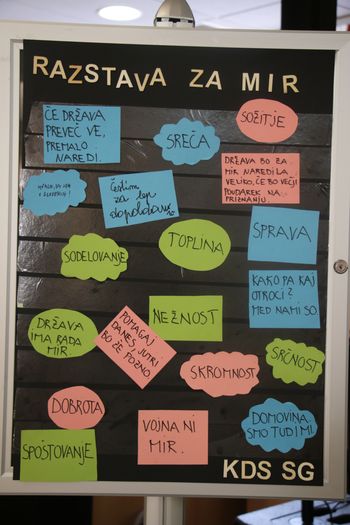 RAZSTAVA ZA MIR
ČE DRŽAVA
PREVEČ VE,
PREMALO
NAREDI.
SREČA
SOŽITJE
DRŽAVA BO ZA
MIR NAREDILA
VELIKO, ČE BO VEČJI
POUDAREK NA
PRIZNANJU
Čestitam
za lep
dopoldan
SODELOVANJE
TOPLINA
SPRAVA
KAKO PA KAJ
OTROCI?
MED NAMI SO.
DRŽAVA
IMA RADA
MIR.
NEŽNOST
POMAGAJ
DANES, JUTRI
BO ŽE POZNO.
SKROMNOST
SRČNOST
DOBROTA
VOJNA NI
MIR.
DOMOVINA
SMO TUDI MI!
SPOŠTOVANJE
KDS SG